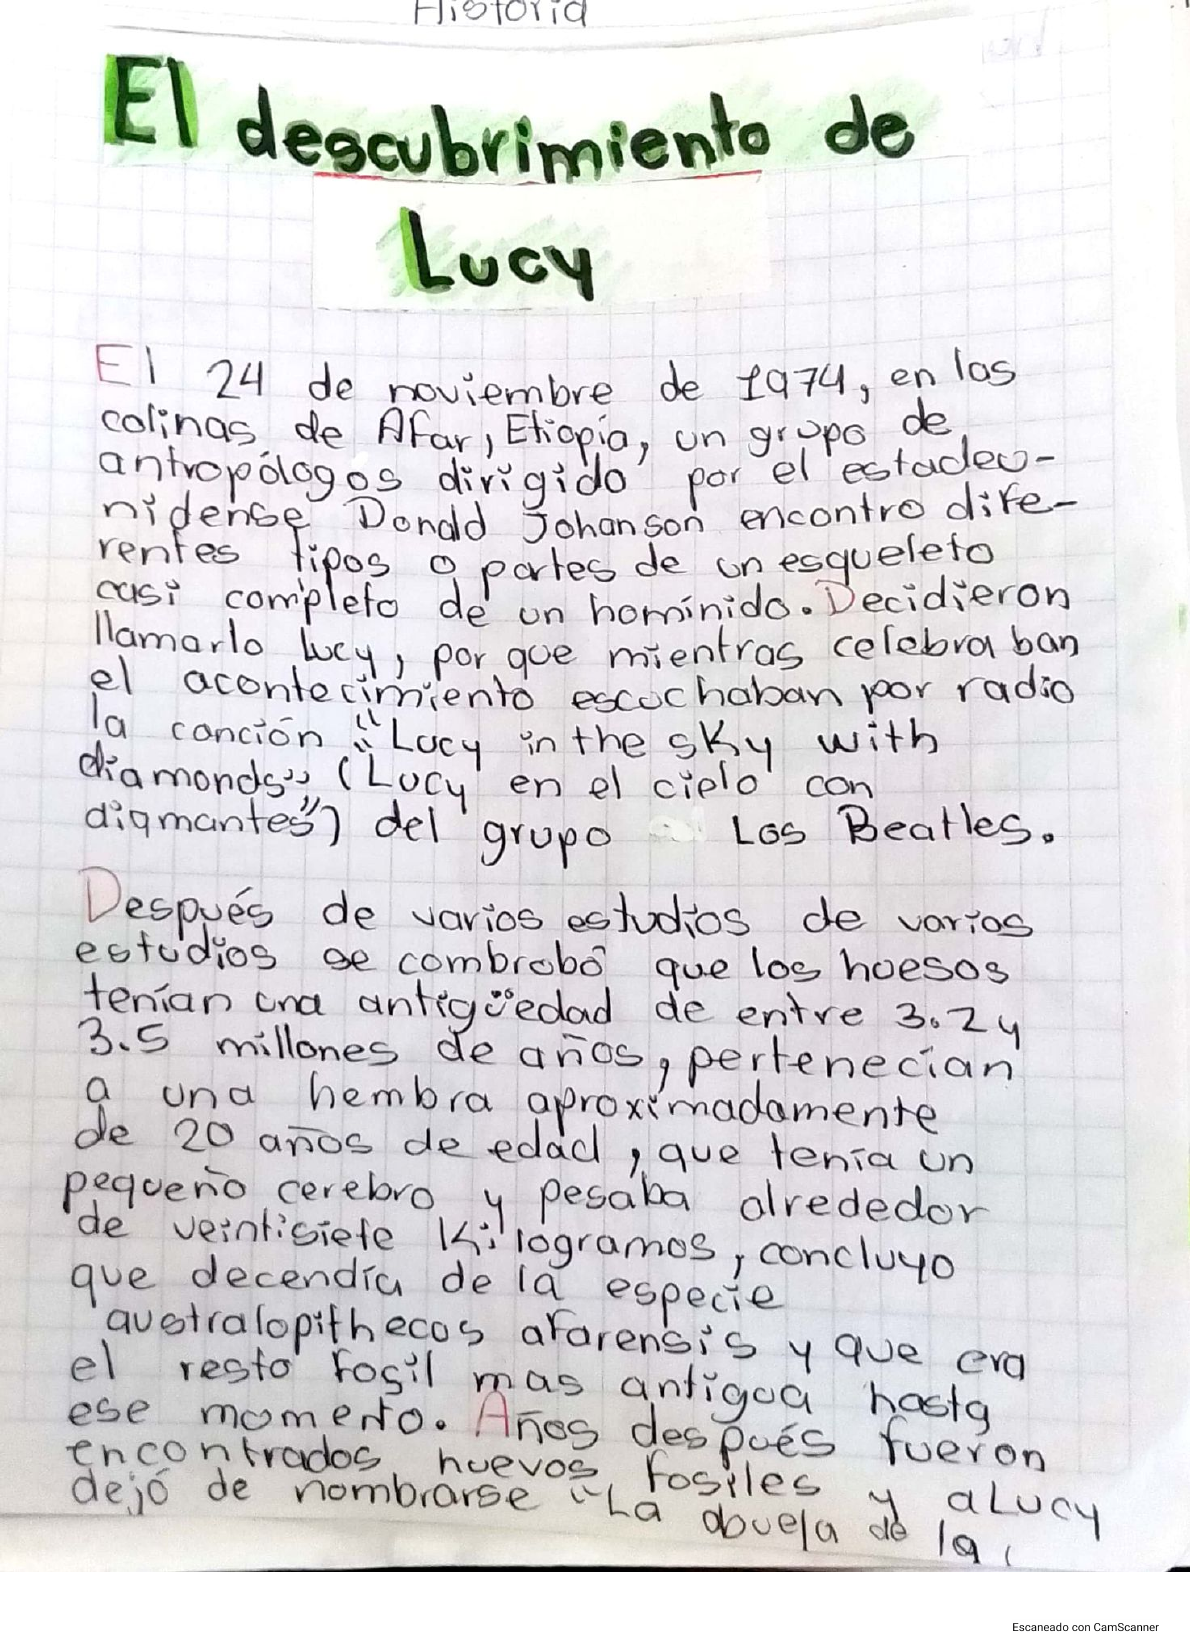 Historia
El descubrimiento de
Lucy
El 24 de noviembre de 1974, en las
colinas de Afar, Etiopía, un grupo de
antropólogos dirigido por el estadeu-
nidense Donald Johanson encontro dife-
rentes tipos o partes de un esqueleto
casi completo de un homínido. Decidieron
llamarlo lucy, por que mientras celebra ban
el acontecimiento escuchaban por radio
la canción "Lucy in the sky with
diamonds" (Lucy en el cielo con
diamantes") del grupo Los Beatles.
Después de varios estudios de varios
estudios se combrobó que los huesos
tenían una antigüedad de entre 3.2 y
3.5 millones de años, pertenecían
a una hembra aproximadamente
de 20 años de edad, que tenía un
pequeño cerebro y pesaba alrededor
de veintisiete kilogramos, concluyo
que decendía de la especie
australopithecos afarensis y que era
el resto fosil mas antigua hasta
ese momento. Años después fueron
encontrados nuevos fosiles y a Lucy
dejó de nombrarse "La abuela de la
Escaneado con CamScanner